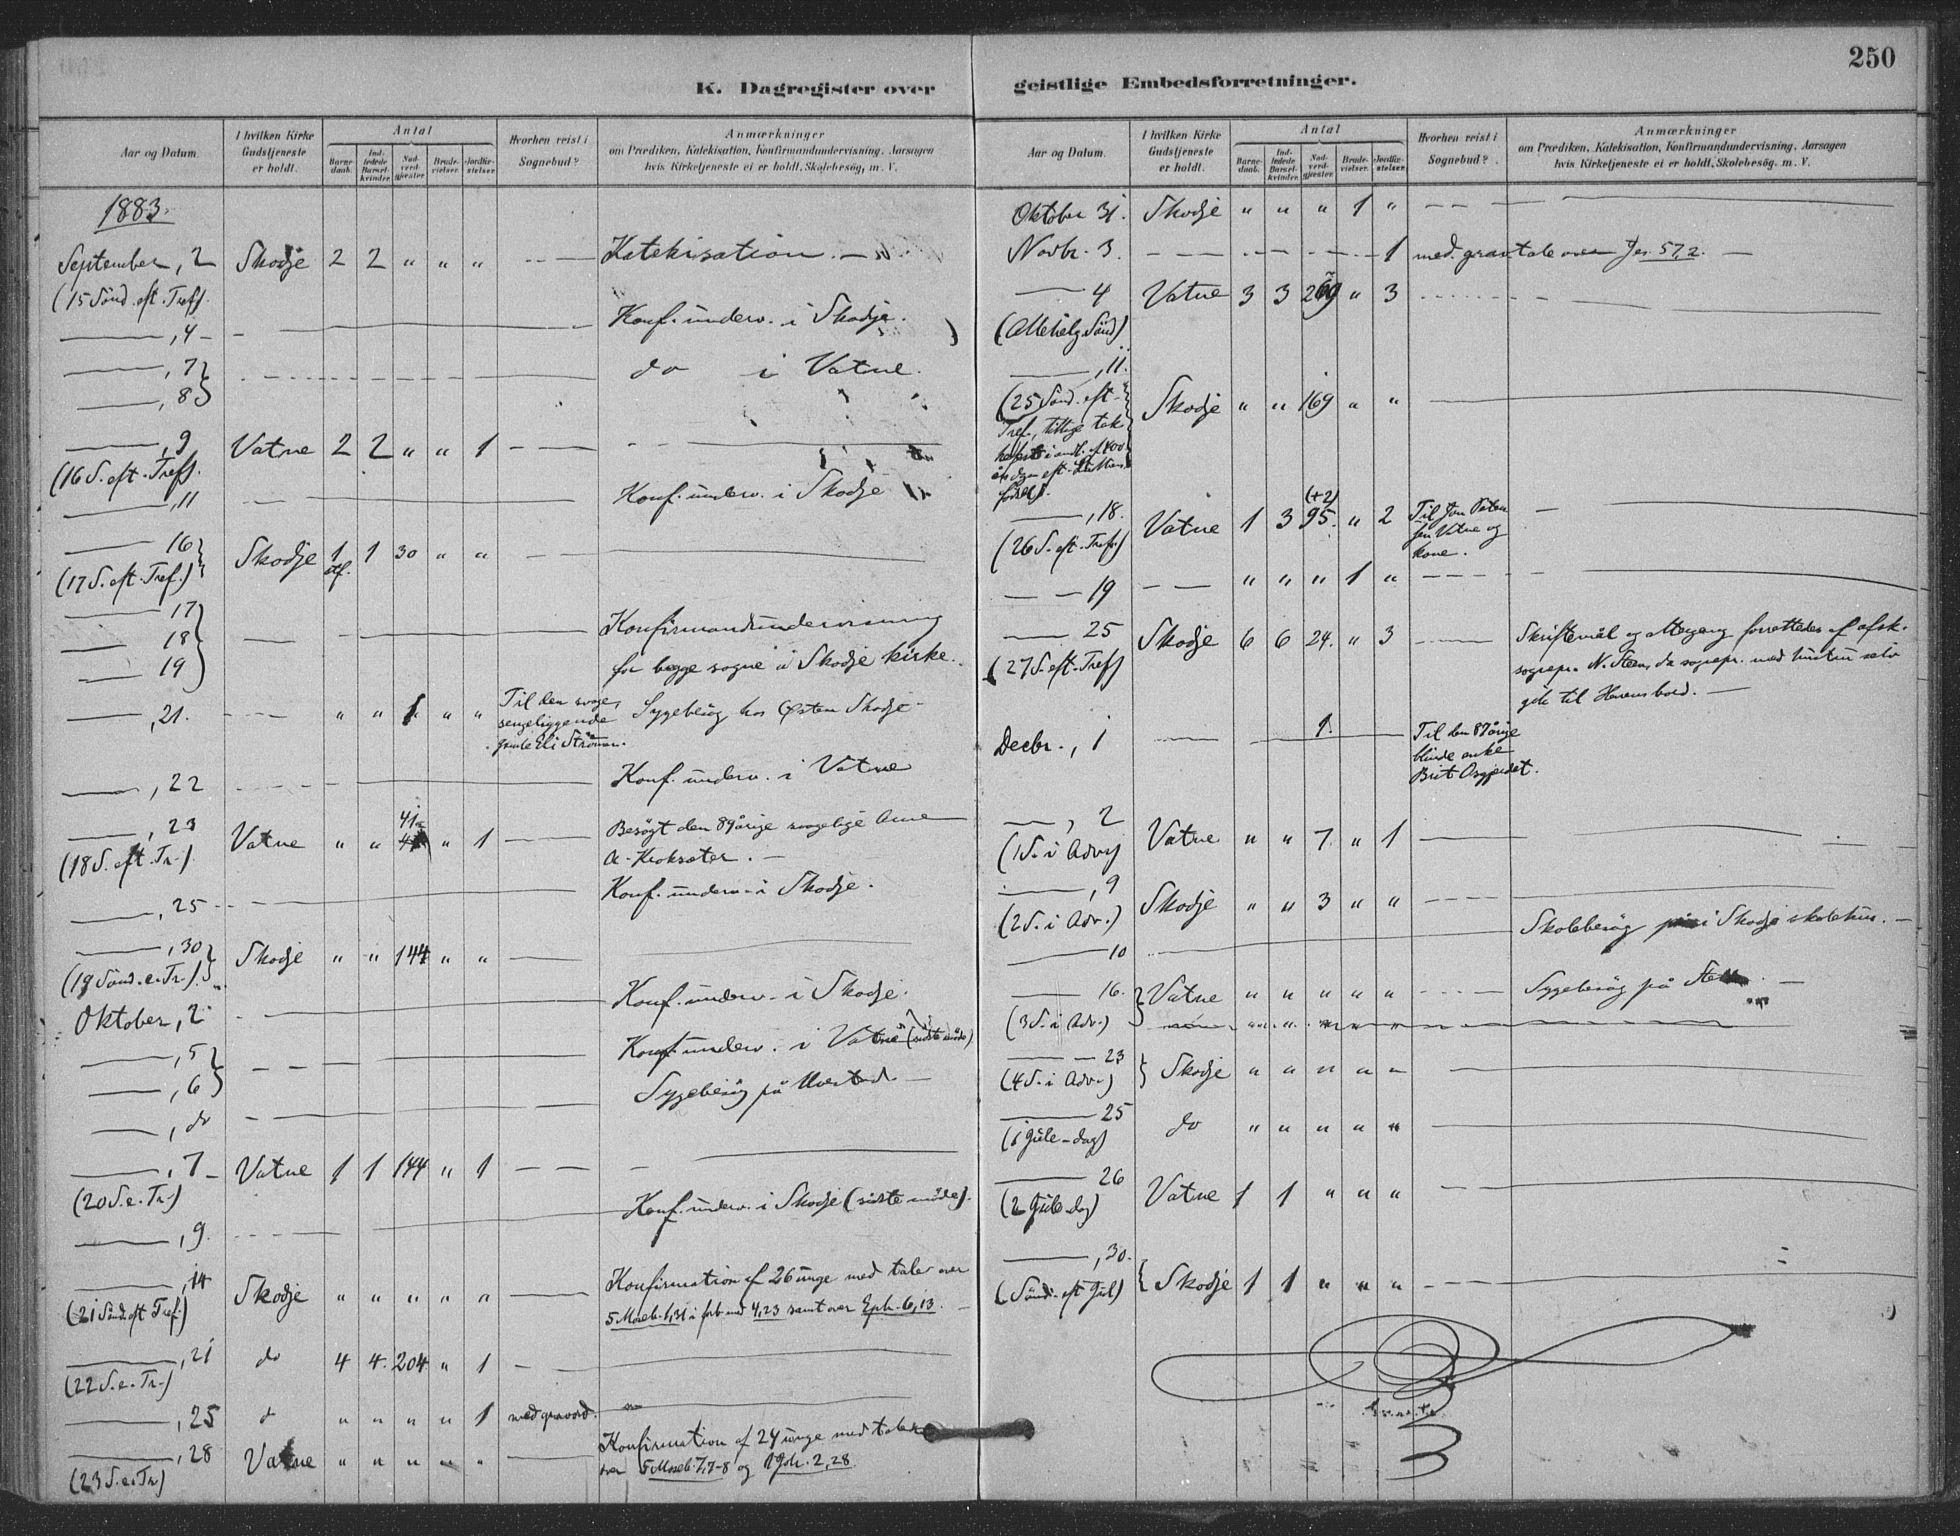 250
K. Dagregister over geistlige Embedsforretninger.
Aar og Datum. I hvilken Kirke Gudstjeneste er holdt. Antal Barnedaab. Indledede Barselkvinder. Nadverdgjester. Brudevielser. Jordfæstelser. Hvorhen reist i Sognebud? Anmærkninger om Prædiken, Katekisation, Konfirmandundervisning, Aarsagen hvis Kirketjeneste ei er holdt, Skolebesøg, m. V.
1883.
September, 2 Skodje 2 2 " " " — Katekisation. —
(15 Sönd. eft. Tref)
— , 4 — Konf. underv. i Skodje.
— , 7 } do i Vatne.
— , 8 }
— , 9 Vatne 2 2 " " 1 — —
(16 S. eft. Tref).
— , 11 — Konf. underv. i Skodje
— 16 Skodje 1 1 30 " " —
(17 S. eft. Tref.)
— 17 } Konfirmandundervisning
— 18 } for begge sogne i Skodje kirke.
— 19 }
— , 21. — " " 1 " " Til den svage, Sygebesög hos Østen Skodje —
sengeliggende
gamle Eli Strömmen.
— , 22 — Konf. underv. i Vatne
— , 23 Vatne " " 41 " 1 — Besögt den 89årige svagelige Anne
(18 S. eft. Tr.) A. Kroksæter. —
— , 25 — Konf. underv. i Skodje.
— , 30 Skodje " " 144 " " —
(19 Sönd. e. Tr.)
Oktober, 2 — Konf. underv. i Skodje.
— , 5 } — Konf. underv. i Vatne (sidste möde)
— , 6 }
— , do — Sygebesög på
— , 7 — Vatne 1 1 144 " 1 — —
(20 S. e. Tr.)
— , 9. — Konf. underv. i Skodje (sidste möde).
— , 14 Skodje " " " " " — Konfirmation af 26 unge med taler over
(21 Sönd. eft Tref.) 5 Moseb. 1,31 i forb. med 4,23 samt over Eph. 6,13. —
— , 21 do 4 4. 204 " 1 —
(22 S. e. Tr.)
— , 25 d " " " " 1 med gravord.
— , 28 Vatne " " " " " — Konfirmation af 24 unge med taler
(23 S. e. Tr) over 5 Moseb. 7,7-8 og 1 Joh. 2,28.
Aar og Datum. I hvilken Kirke Gudstjeneste er holdt. Antal Barnedaab. Indledede Barselkvinder. Nadverdgjester. Brudevielser. Jordfæstelser. Hvorhen reist i Sognebud? Anmærkninger om Prædiken, Katekisation, Konfirmandundervisning, Aarsagen hvis Kirketjeneste ei er holdt, Skolebesøg, m. V.
Oktober 31. Skodje " " " 1 " — —
Novbr. 3. — 1 med gravtale over Jes. 57,2. —
— 4 Vatne 3 3 " 3
(Allehelg. Sönd)
— , 11.
(25 Sönd. eft. Skodje " " 169 " " —
Tref., tillige tak-
400
födsel).
— , 18. Vatne 1 3 (+2) 95. " 2 Til Jon
(26 S. eft. Tref.) Vatne og
kone.
— — 19 — — " " " 1 " —
— 25 Skodje 6 6 24. " 3 — Skriftemål og altergang forrettedes af afsk.
(27 S. eft. Tref) sognepr. N. Steen, da sognepr. med hustru selv
gik til Herrens bord. —
Decbr. , 1 — 1. Til den 87årige
blinde enke
Brit
— , 2 Vatne " " 7. " 1 —
(1 S. i Adv.)
— , 9 Skodje " " 3 " " —
(2 S. i Adv.)
— 10 — Skolebesög i Skodje skolehus. —
— 16. Vatne " " " " " — Sygebesög på —
(3 S. i Adv.)
— — 23 Skodje " " " " " —
(4 S. i Adv.)
— 25 do " " " " " —
(1 Jule-dag)
— 26 Vatne 1 1 " " " —
(2 Jule-dag)
— , 30. Skodje 1 1 " " " —
(Sönd. eft Jul)